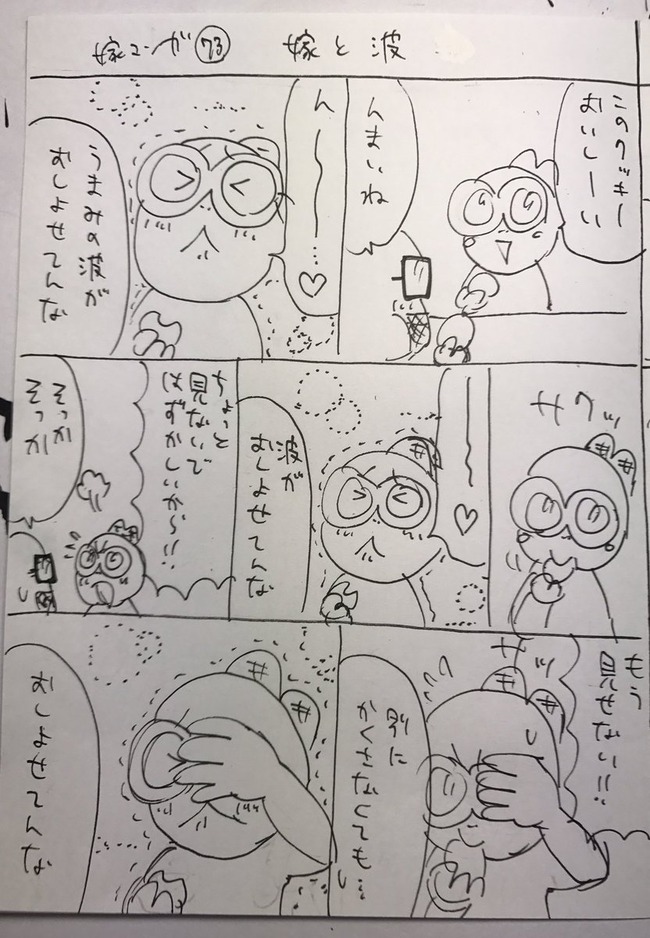 嫁マンガ 73 嫁と波
このクッキー
おいしーい
んまいね
ん〜〜…♡
うまみの波が
おしよせてんな
サクッ
〜〜♡
波が
おしよせてんな
ちょっと
見ないで
はずかしいから!!
そっか
そっか
もう
見せない!!
サッ
別に
かくさなくても…
おしよせてんな